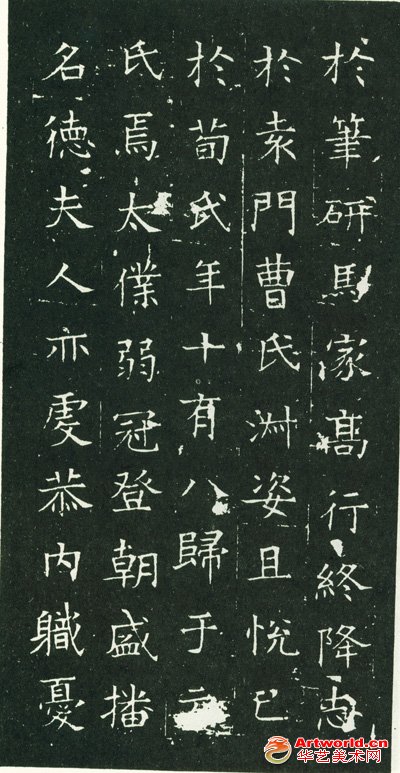 於筆研馬家髙行終降志
於袁門曹氏淑姿且悅已
於荀氏年十有八歸于元
氏焉太僕弱冠登朝盛播
名德夫人亦虔恭內職憂
Artworld.cn
华艺美术网